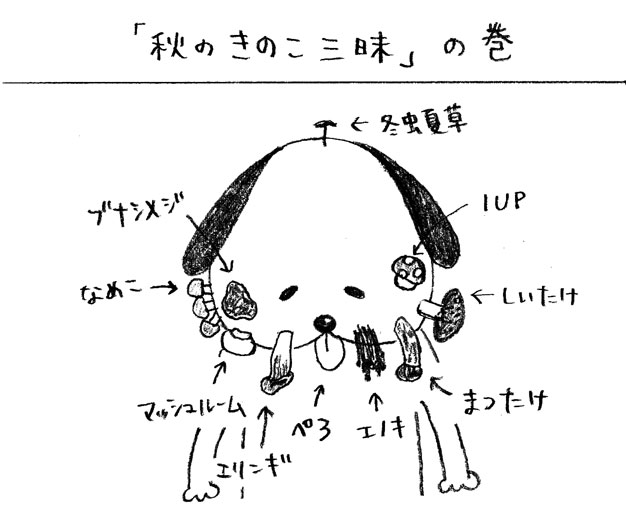 「秋のきのこ三昧」の巻
←冬虫夏草
ブナシメジ
1UP
なめこ→
←しいたけ
マッシュルーム
エリンギ
ペろ
エノキ
まつたけ